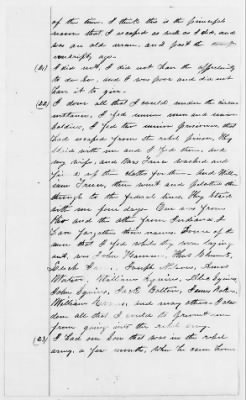 of the time. I think this is the principal
reason that I escaped as well as I did, and
was an old man, and past the
conscript age.
(21) I did not, I did not have the opportunity
to do so, and I was poor and did not
have it to give.
(22) I done all that I could under the circum
stances, I fed union men and union
soldiers, I fed two union prisoners, that
had escaped from the rebel prison, they
staid with me and I fed them, and
my wife, and Mrs Truer washed and
fixed up the clothes for them. And Will
iam Truer, then went and piloted them
through to the federal lines. They staid
with me four days. One was from
and the other from Indiana. I
have forgotten their names. Some of the
men that I fed while they were laying
out, was John Thos
Joseph Amos
Watson, William Squires, Silas Squires
John Squires, Jack Bolton, James
William and many others. I also
done all that I could to prevent men
from going into the rebel army.
(23) I had one son that was in the rebel
army, a few months, when he came home